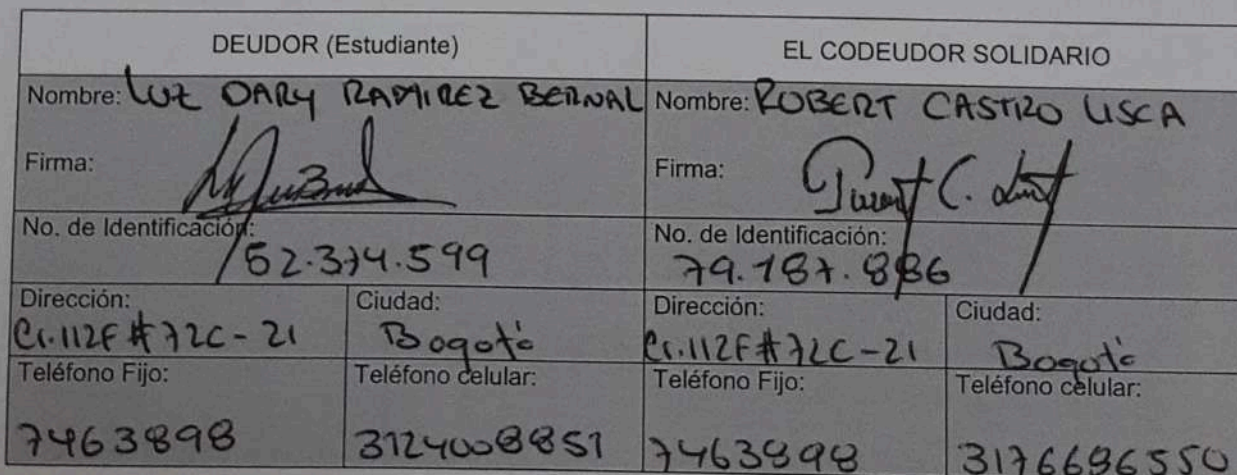 DEUDOR (Estudiante)
EL CODEUDOR SOLIDARIO
Nombre: LUZ DARY RAMIREZ BERNAL
Nombre: ROBERT CASTRO LISCA
Firma:
Firma:
No. de Identificación:
52.374.599
No. de Identificación:
79.187.886
Dirección:
Cr.112F#72C-21
Ciudad:
Bogotá
Dirección:
Cr.112F#72C-21
Ciudad:
Bogotá
Teléfono Fijo:
7463898
Teléfono celular:
3124008851
Teléfono Fijo:
7463898
Teléfono celular:
3176686550